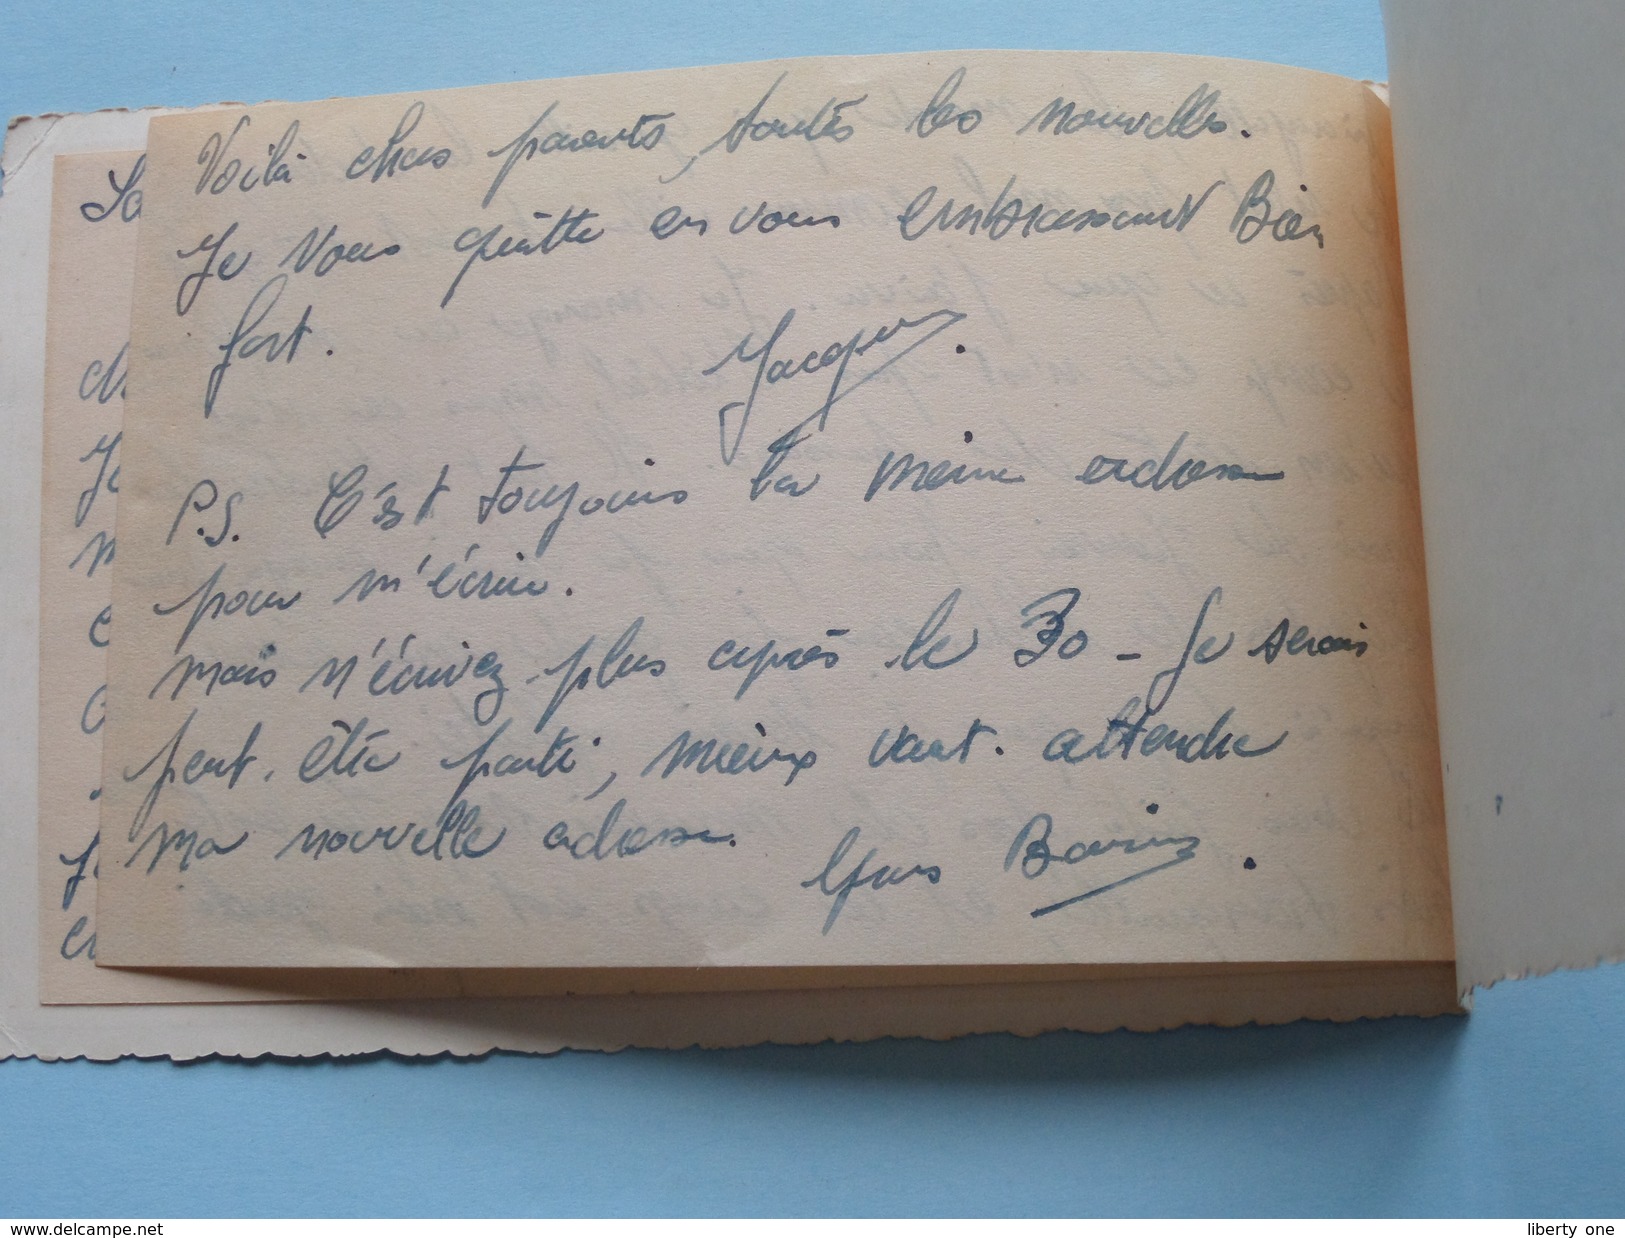 Voilà chers parents, toutes les nouvelles.
Je vous quitte en vous embrassant Bien
fort.
Jacques.
P.S. C'est toujours la même adresse
pour m'écrire.
mais n'écrivez plus après le 30 - Je serais
peut-être parti, mieux vaut attendre
ma nouvelle adresse.
Gros Baisers.
delcampe.net
liberty one